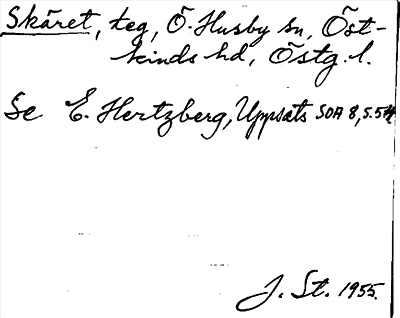 Skäret, teg, Ö. Husby sn, Öst-
kinds hd, Östg. l.
Se E. Hertzberg, Uppsats SOA 8, s. 54.
J. St. 1955.